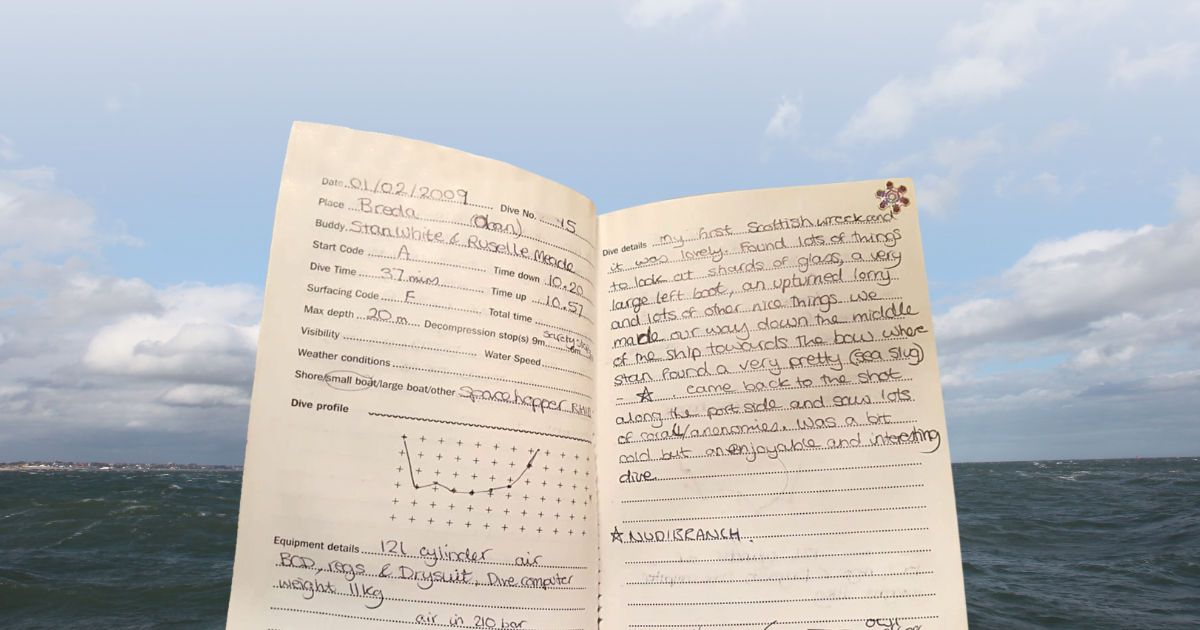 Date 01/02/2009 Dive No. 15
Place Breda (Oban)
Buddy Stan White & Ruselle Meade
Start Code A Time down 10.20
Dive Time 37 mins Time up 10.57
Surfacing Code F Total time
Max depth 20 m Decompression stop(s) 9m 6m
Visibility Water Speed
Weather conditions
Shore/small boat/large boat/other Spacehopper RHIB
Dive profile
Equipment details 12L cylinder air
BCD, regs & Drysuit, Dive computer
weight 11kg
air in 210 bar
Dive details my first Scottish wreck and
it was lovely. Found lots of things
to look at shards of glass, a very
large left boot, an upturned lorry
and lots of other nice things we
made our way down the middle
of the ship towards the bow where
Stan found a very pretty (sea slug)
- ☆. came back to the shot
along the port side and saw lots
of coral/anonomies. Was a bit
cold but an enjoyable and interesting
dive.
☆ NUDIBRANCH.